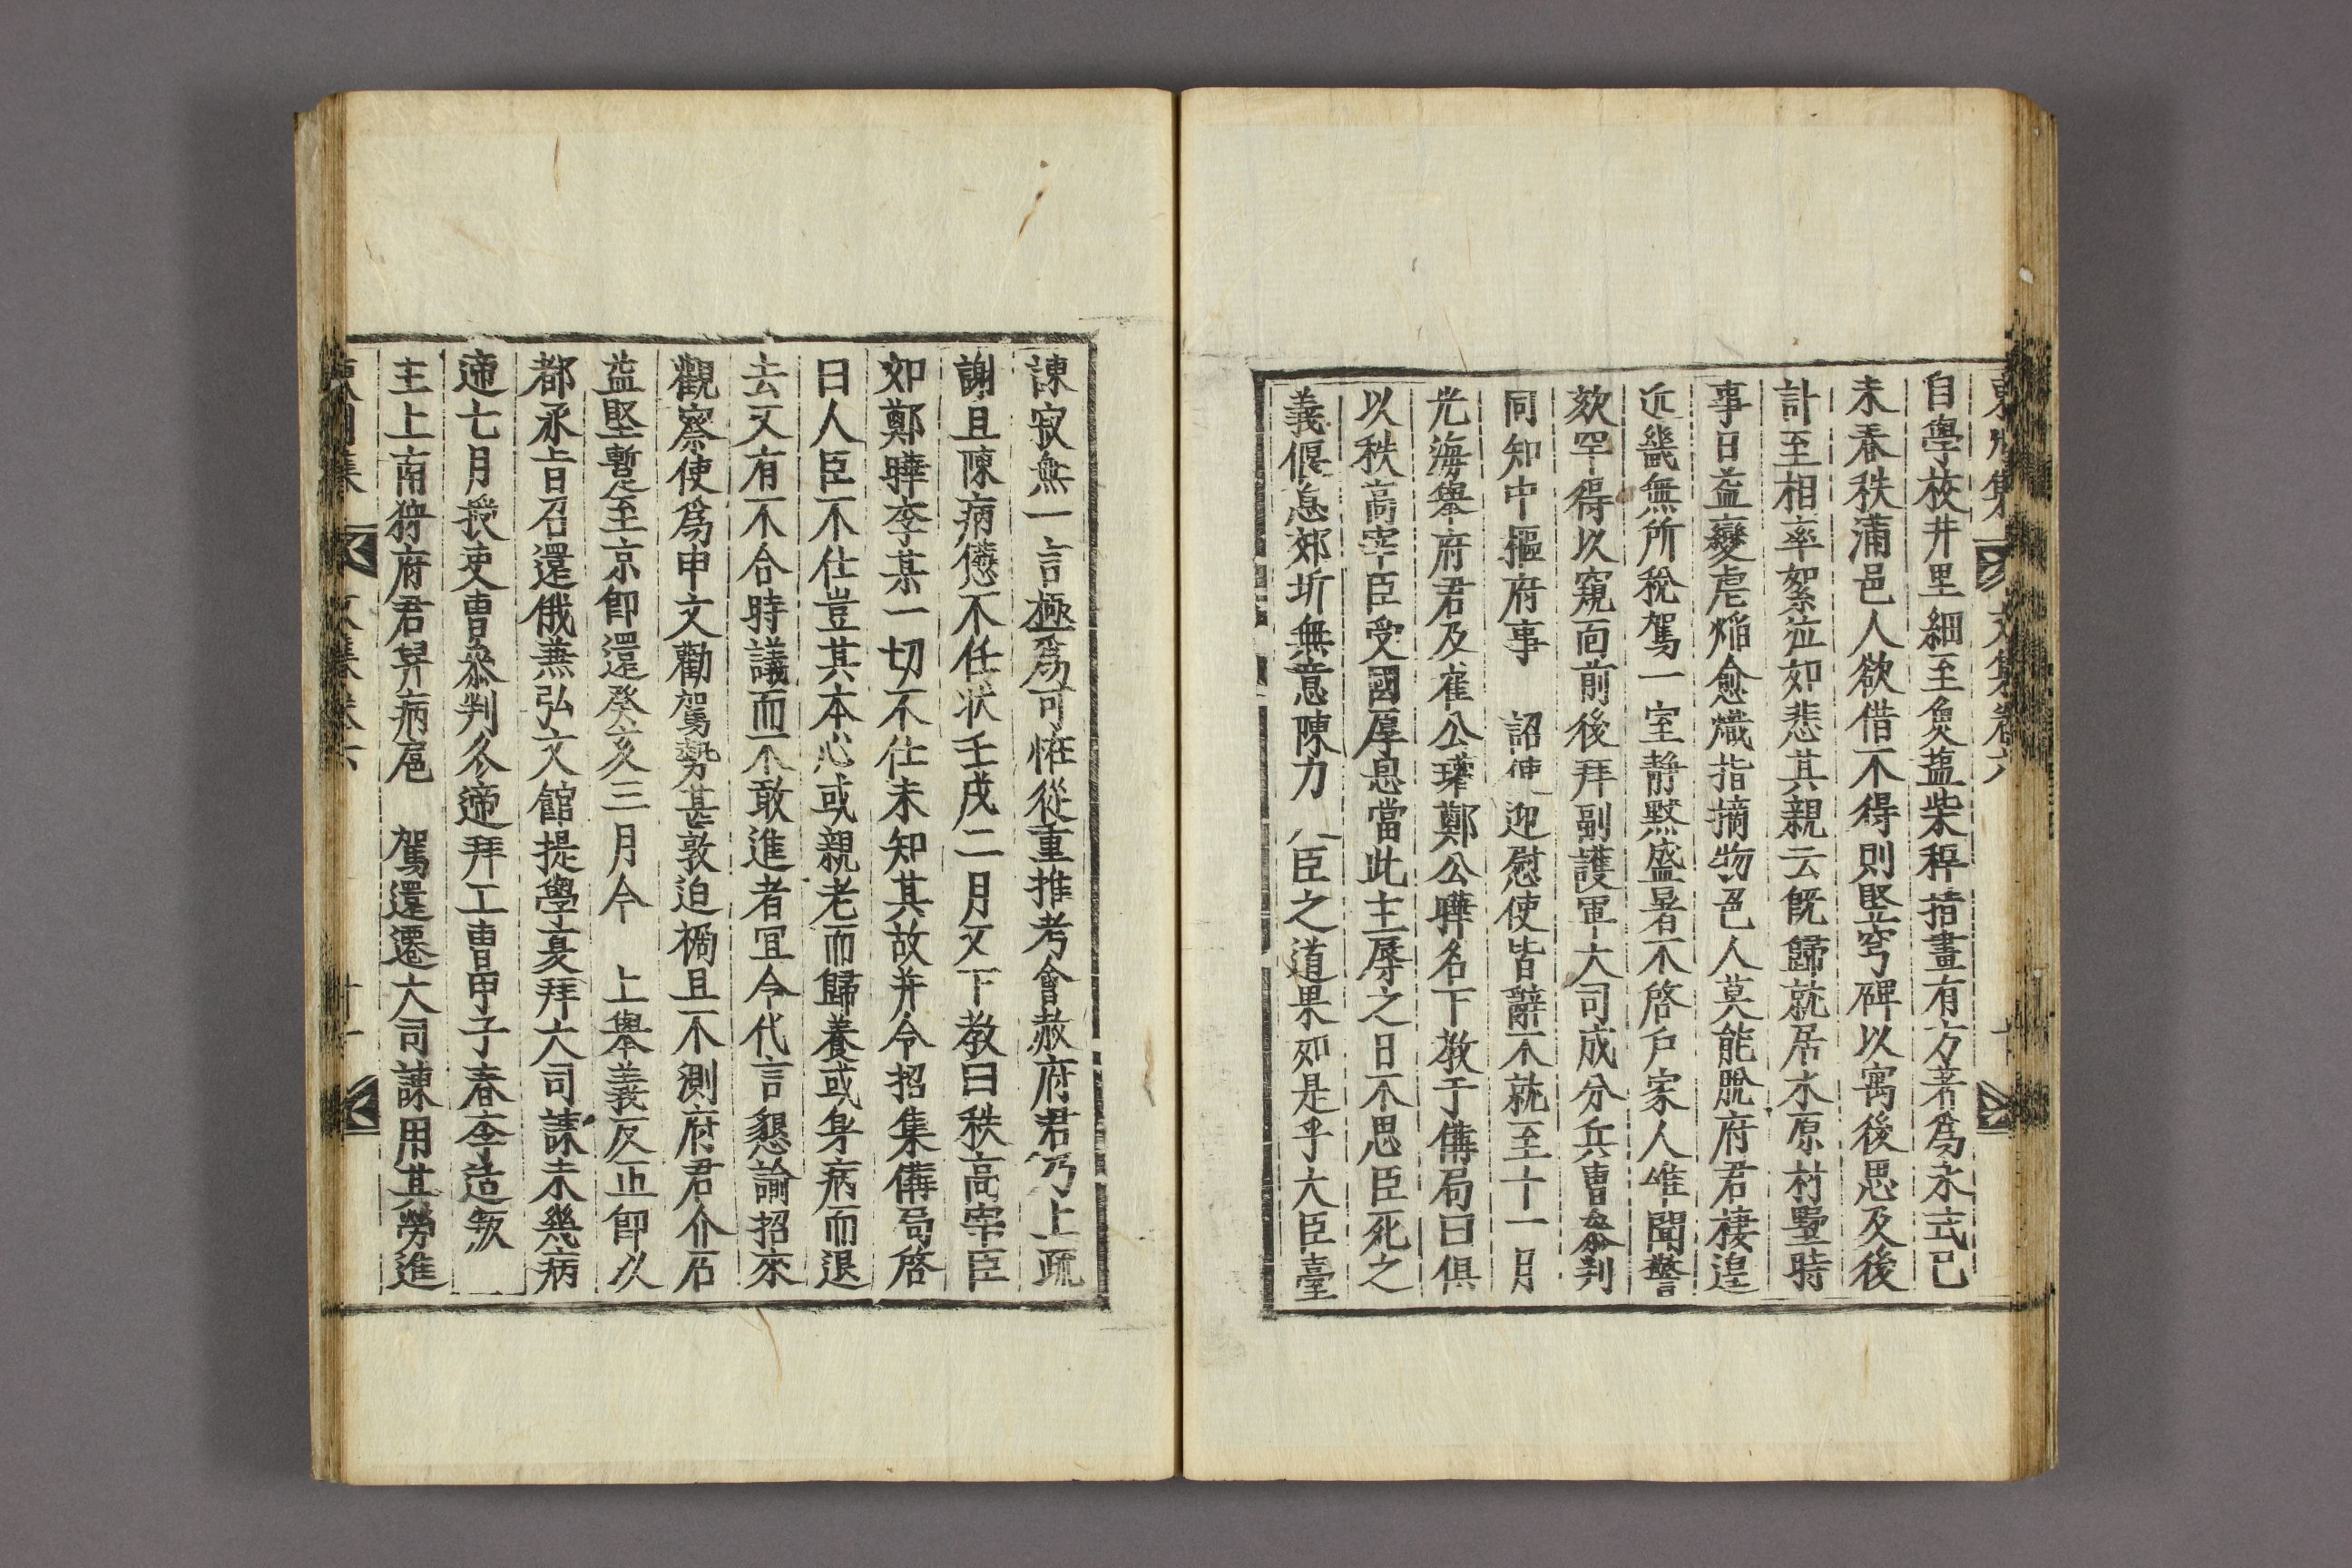 東州集 文集卷六
自學校井里細至魚鹽柴稈措畫有方著爲永式己
未春秩滿邑人欲借不得則竪穹碑以寓後思及後
計至相率絮泣如悲其親云旣歸就居水原村墅時
事日益變虐焰愈熾指摘物色人莫能脫府君棲遑
近畿無所稅駕一室靜黙盛暑不啓戶家人唯聞警
欬罕得以窺面前後拜副護軍大司成分兵曹叅判
同知中樞府事 詔使迎慰使皆辭不就至十一月
光海擧府君及崔公瓘鄭公曄名下敎于備局曰俱
以秩高宰臣受國厚恩當此主辱之日不思臣死之
義偃息郊圻無意陳力人臣之道果如是乎大臣臺
諫寂無一言極爲可恠從重推考會赦府君乃上疏
謝且陳病憊不任狀壬戌二月又下敎曰秩高宰臣
如鄭曄李某一切不仕未知其故并令招集備局啓
曰人臣不仕豈其本心或親老而歸養或身病而退
去又有不合時議而不敢進者宜令代言懇諭招來
觀察使爲申文勸駕勢甚敦迫禍且不測府君介石
益堅暫至京卽還癸亥三月今 上擧義反正卽以
都承旨召還俄兼弘文館提學夏拜大司諫未幾病
遞七月授吏曹叅判冬遞拜工曹甲子春李适叛
主上南狩府君舁病扈 駕還遷大司諫用其勞進
東州集 文集卷六